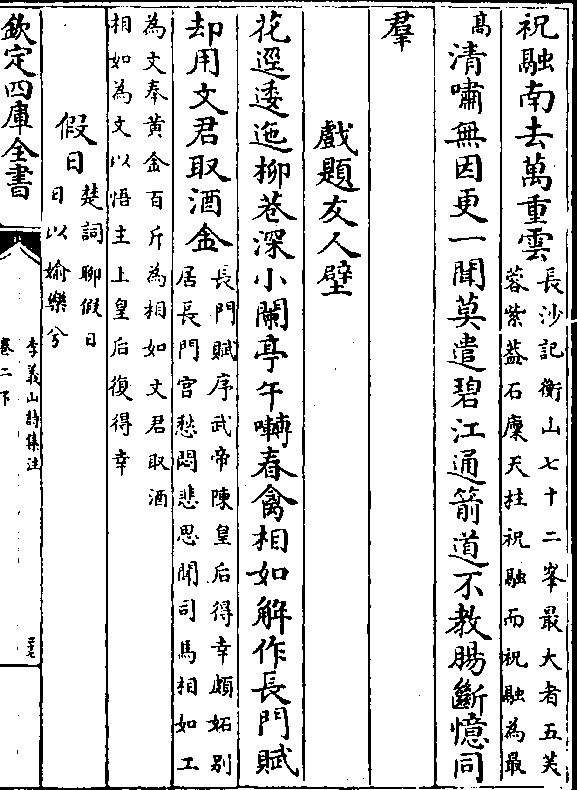 祝融南去萬重雲長沙記衡山七十二峯最大者五芙
蓉紫葢石廩天柱祝融而祝融為最
髙清嘯無因更一聞莫遣碧江通箭道不教腸斷憶同
羣
戲題友人壁
花逕逶迤柳巷深小闌亭午囀春禽相如解作長門賦
却用文君取酒金長門賦序武帝陳皇后得幸頗妬别
居長門宫愁悶悲思聞司馬相如工
為文奉黄金百斤為相如文君取酒
相如為文以悟主上皇后復得幸
假日楚詞聊假日
日以婾樂兮
欽定四庫全書
李義山詩集注
卷二下